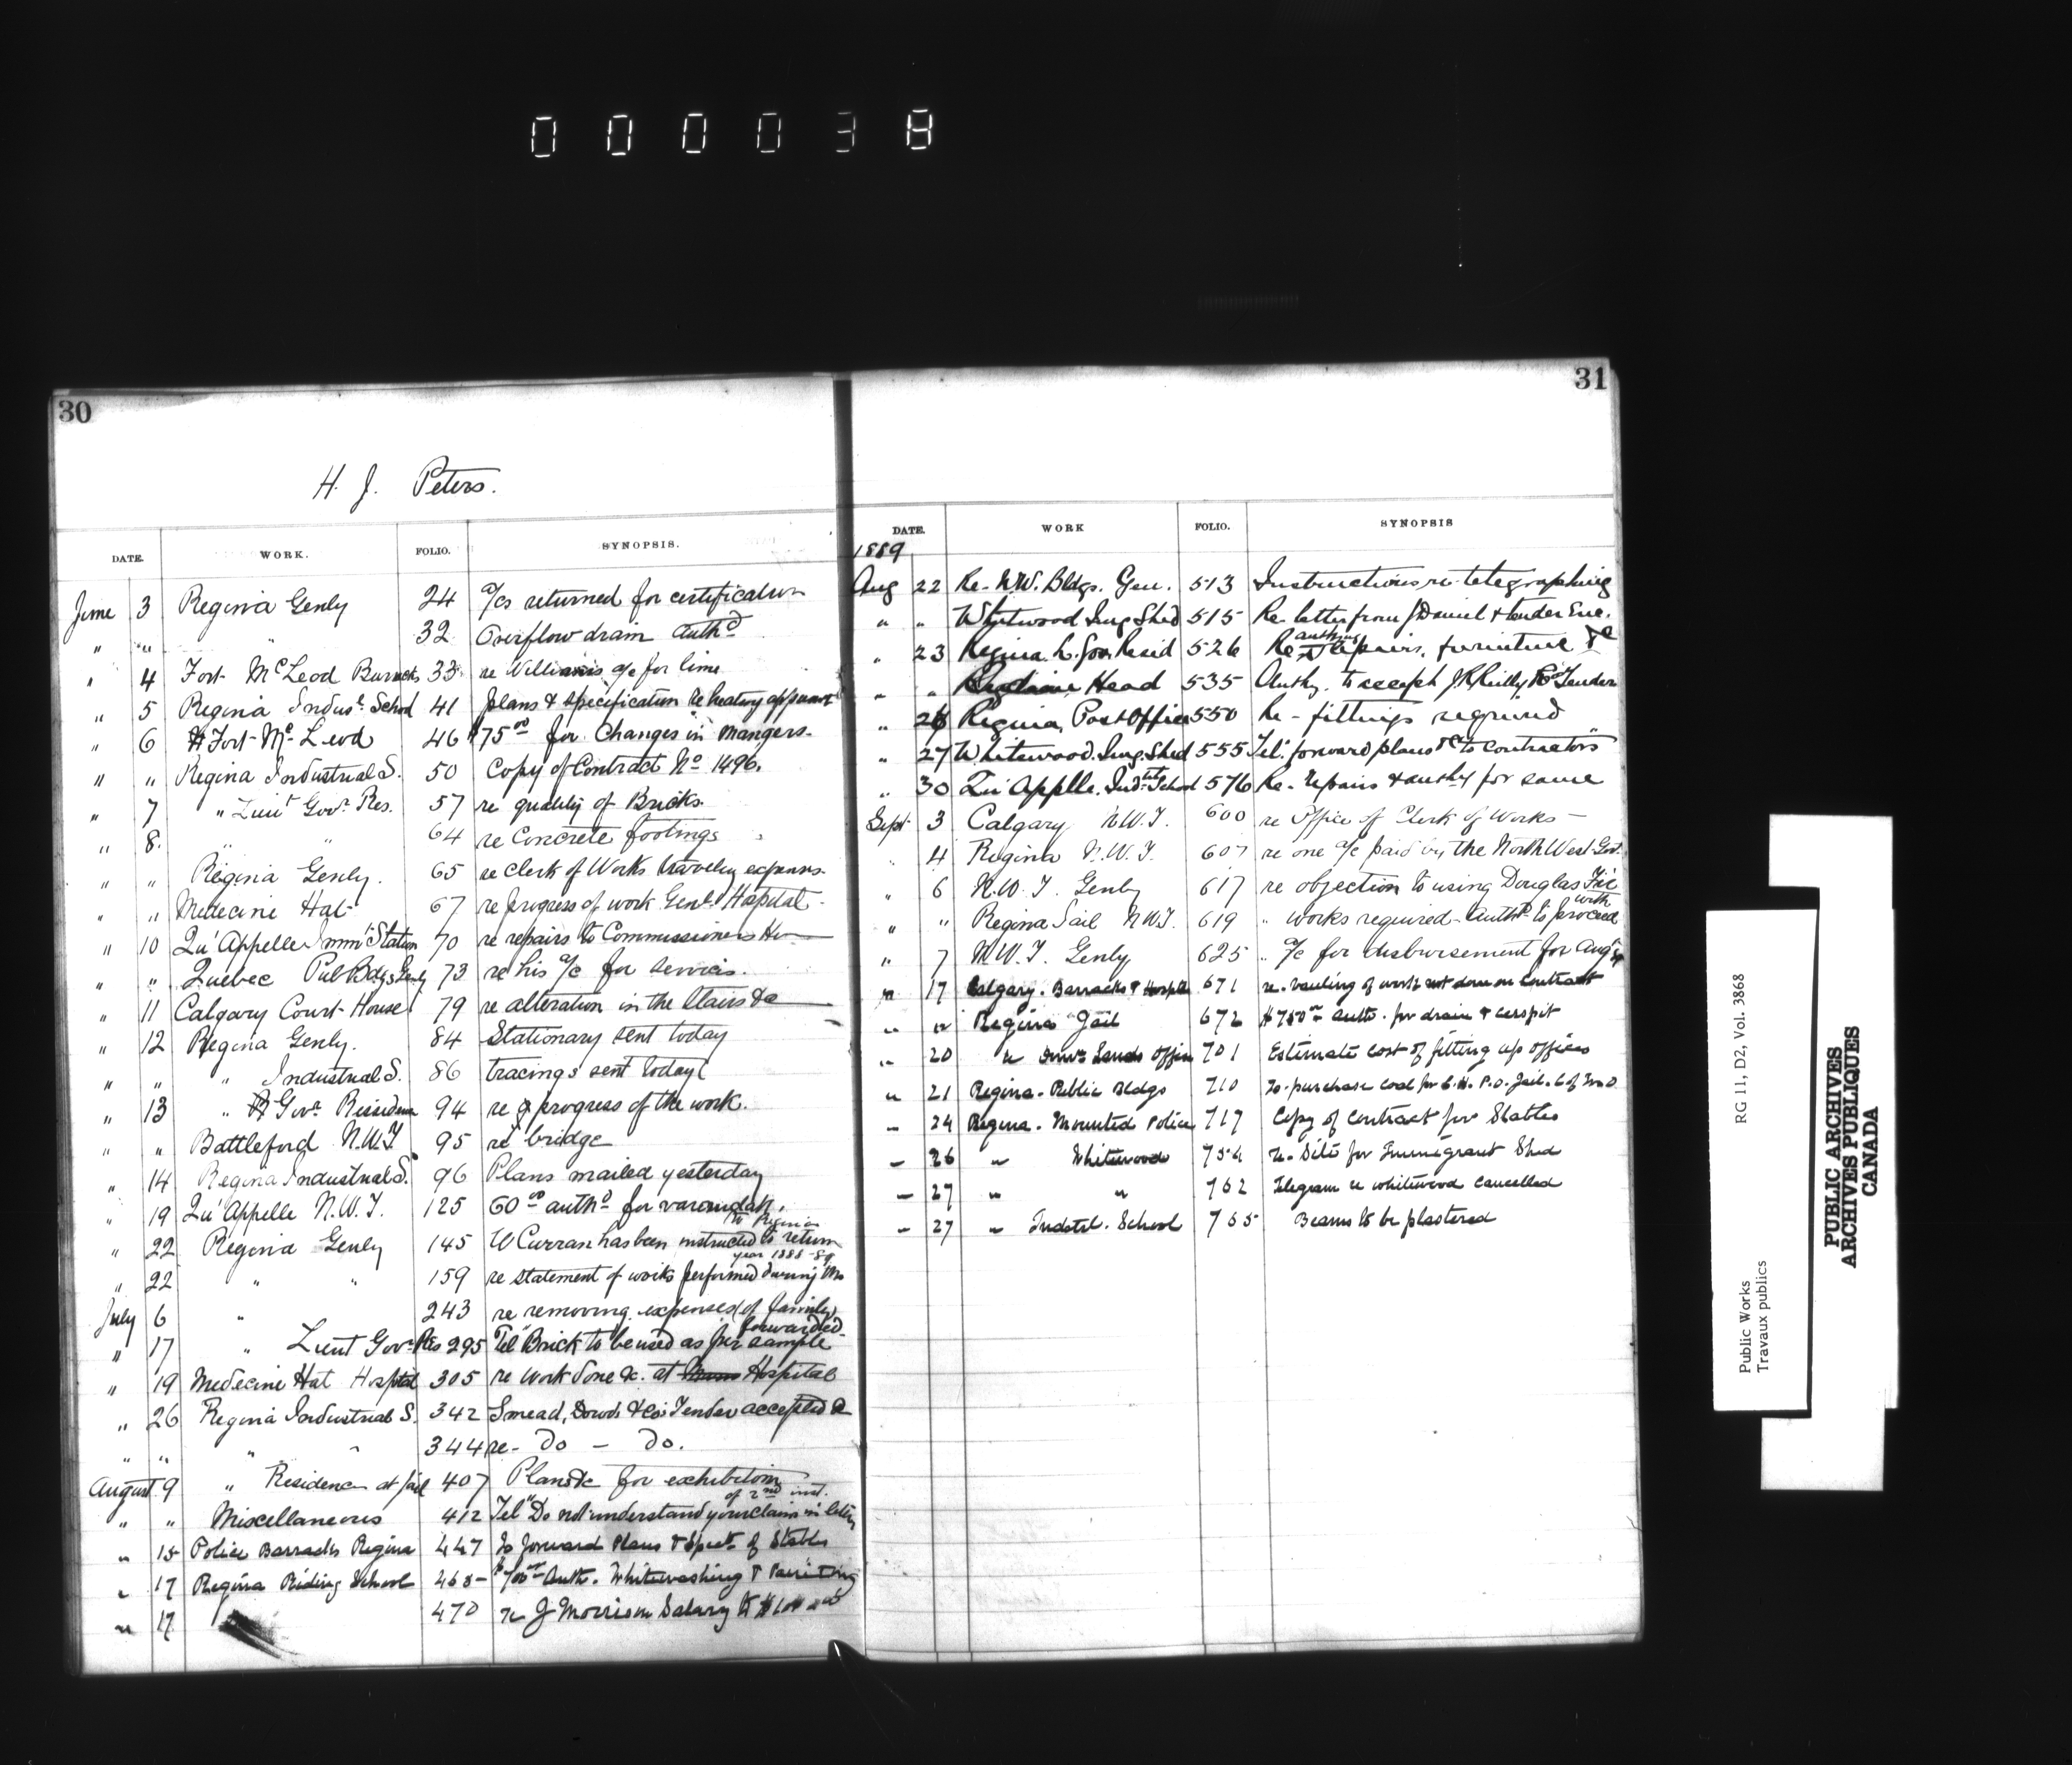 000038
30
H. J. Peters.
DATE. WORK. FOLIO. SYNOPSIS.
June 3 Regina Genly 24 a/cs returned for certification
" " " 32 Overflow drain Authd
" 4 Fort McLeod Barracks 33 re Williams a/c for lime
" 5 Regina Indust. School 41 plans & specification re heating
" 6 Fort McLeod 46 $75.00 for Changes in Mangers.
" " Regina Industrial S. 50 Copy of Contract No 1496.
" 7 " Lieut Govr. Res. 57 re quality of Bricks.
" 8. " " 64 re Concrete footings
" " Regina Genly. 65 re Clerk of Works traveling expenses
" " Medecine Hat 67 re progress of work Genl. Hospital
" 10 Qu'Appelle Immt Station 70 re repairs to Commissioners
" " Quebec Pub Bdgs Genly 73 re his a/c for services.
" 11 Calgary Court House 79 re alteration in the Stairs &c
" 12 Regina Genly. 84 Stationary sent today
" " " Industrial S. 86 tracings sent today
" 13 " Govr. Residence 94 re progress of the work.
" " Battleford N.W.T 95 re bridge
" 14 Regina Industrial S. 96 Plans mailed yesterday
" 19 Qu'Appelle N.W.T. 125 60.00 authd for varandah.
" 22 Regina Genly 145 W Curran has been instructed to return to Regina
" 22 " " 159 re statement of works performed during the year 1888-89
July 6 " 243 re removing expenses (of family)
" 17 " Lieut Govr Res 295 Tel "Brick to be used as per sample forwarded"
" 19 Medecine Hat Hospital 305 re work done &c. at Hospital
" 26 Regina Industrial S. 342 Smead, Dowd & Cos Tender accepted
" " " " 344 re - Do - Do.
August 9 " Residence at Jail 407 Plans &c for exhibition
" " Miscellaneous 412 Tel "Do not understand your claim in letter of 2nd inst.
" 15 Police Barracks Regina 447 To forward Plans & Specn of Stables
" 17 Regina Riding School 465 Auth. Whitewashing & Painting
" 17 470 re J Morrison Salary to
31
DATE. WORK FOLIO. SYNOPSIS
1889
Aug 22 Re- N.W. Bldgs. Gen. 513 Instructions re telegraphing
" " Whitwood Img Shed 515 Re letter from J Daniel & tender Enc.
" 23 Regina L. Gov Resid 526 Re authy repairs, furniture &c
" " Head 535 Authy. to accept J. Reilly & Co Tender
" 26 Regina Post Office 550 Re- fittings required
" 27 Whitewood Img. Shed 555 Tel. forward plans &c to contractors
" 30 Qu'Applle. Indt. School 576 Re- repairs & authy for same
Sept 3 Calgary N.W.T. 600 re Office of Clerk of Works -
" 4 Regina N.W.T. 607 re one a/c paid by the North West Govt.
" 6 N.W.T. Genly 617 re objection to using Douglas Fir
" " Regina Jail N.W.T. 619 " works required - Authd to proceed with
" 7 N.W.T. Genly 625 " a/c for disbursement for Aug
" 17 Calgary. Barracks & Hospital 671 re. of work not done on Contract
" " Regina Jail 672 $750.00 auth. for drain & cesspit
" 20 " Domn Lands Office 701 Estimate cost of fitting up offices
" 21 Regina - Public Bldgs 710 To purchase coal for C.H. P.O. Jail.
" 24 Regina - Mounted Police 717 Copy of contract for Stables
" 26 " Whitewood 754 re. Site for Immigrant Shed
" 27 " " 762 Telegram re Whitewood cancelled
" 27 " Indstrl. School 765 Beams to be plastered
Public Works
Travaux publics
RG 11, D2, Vol. 3868
PUBLIC ARCHIVES
ARCHIVES PUBLIQUES
CANADA